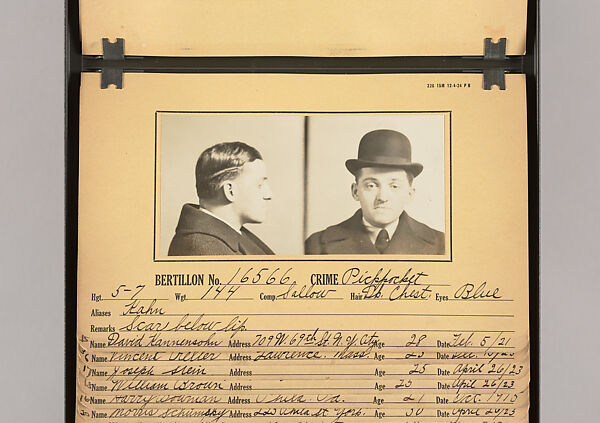 220 15M 12-4-24 P B
BERTILLON No. 16566 CRIME Pickpocket
Hgt. 5-7 Wgt. 144 Comp. Sallow Hair Dk. Chest. Eyes Blue
Aliases Kahn
Remarks Scar below lip
Name David Address 709 W. 69th St. N. Y. City Age 28 Date Feb. 5/21
Name Vincent Address Lawrence, Mass. Age Date
Name Joseph Stein Address Age 25 Date April 26/23
Name William Brown Address Age 25 Date April 26/23
Name Harry Address Phila. Pa. Age 21 Date Oct.
Name Morris Address Phila St York. Age 30 Date April